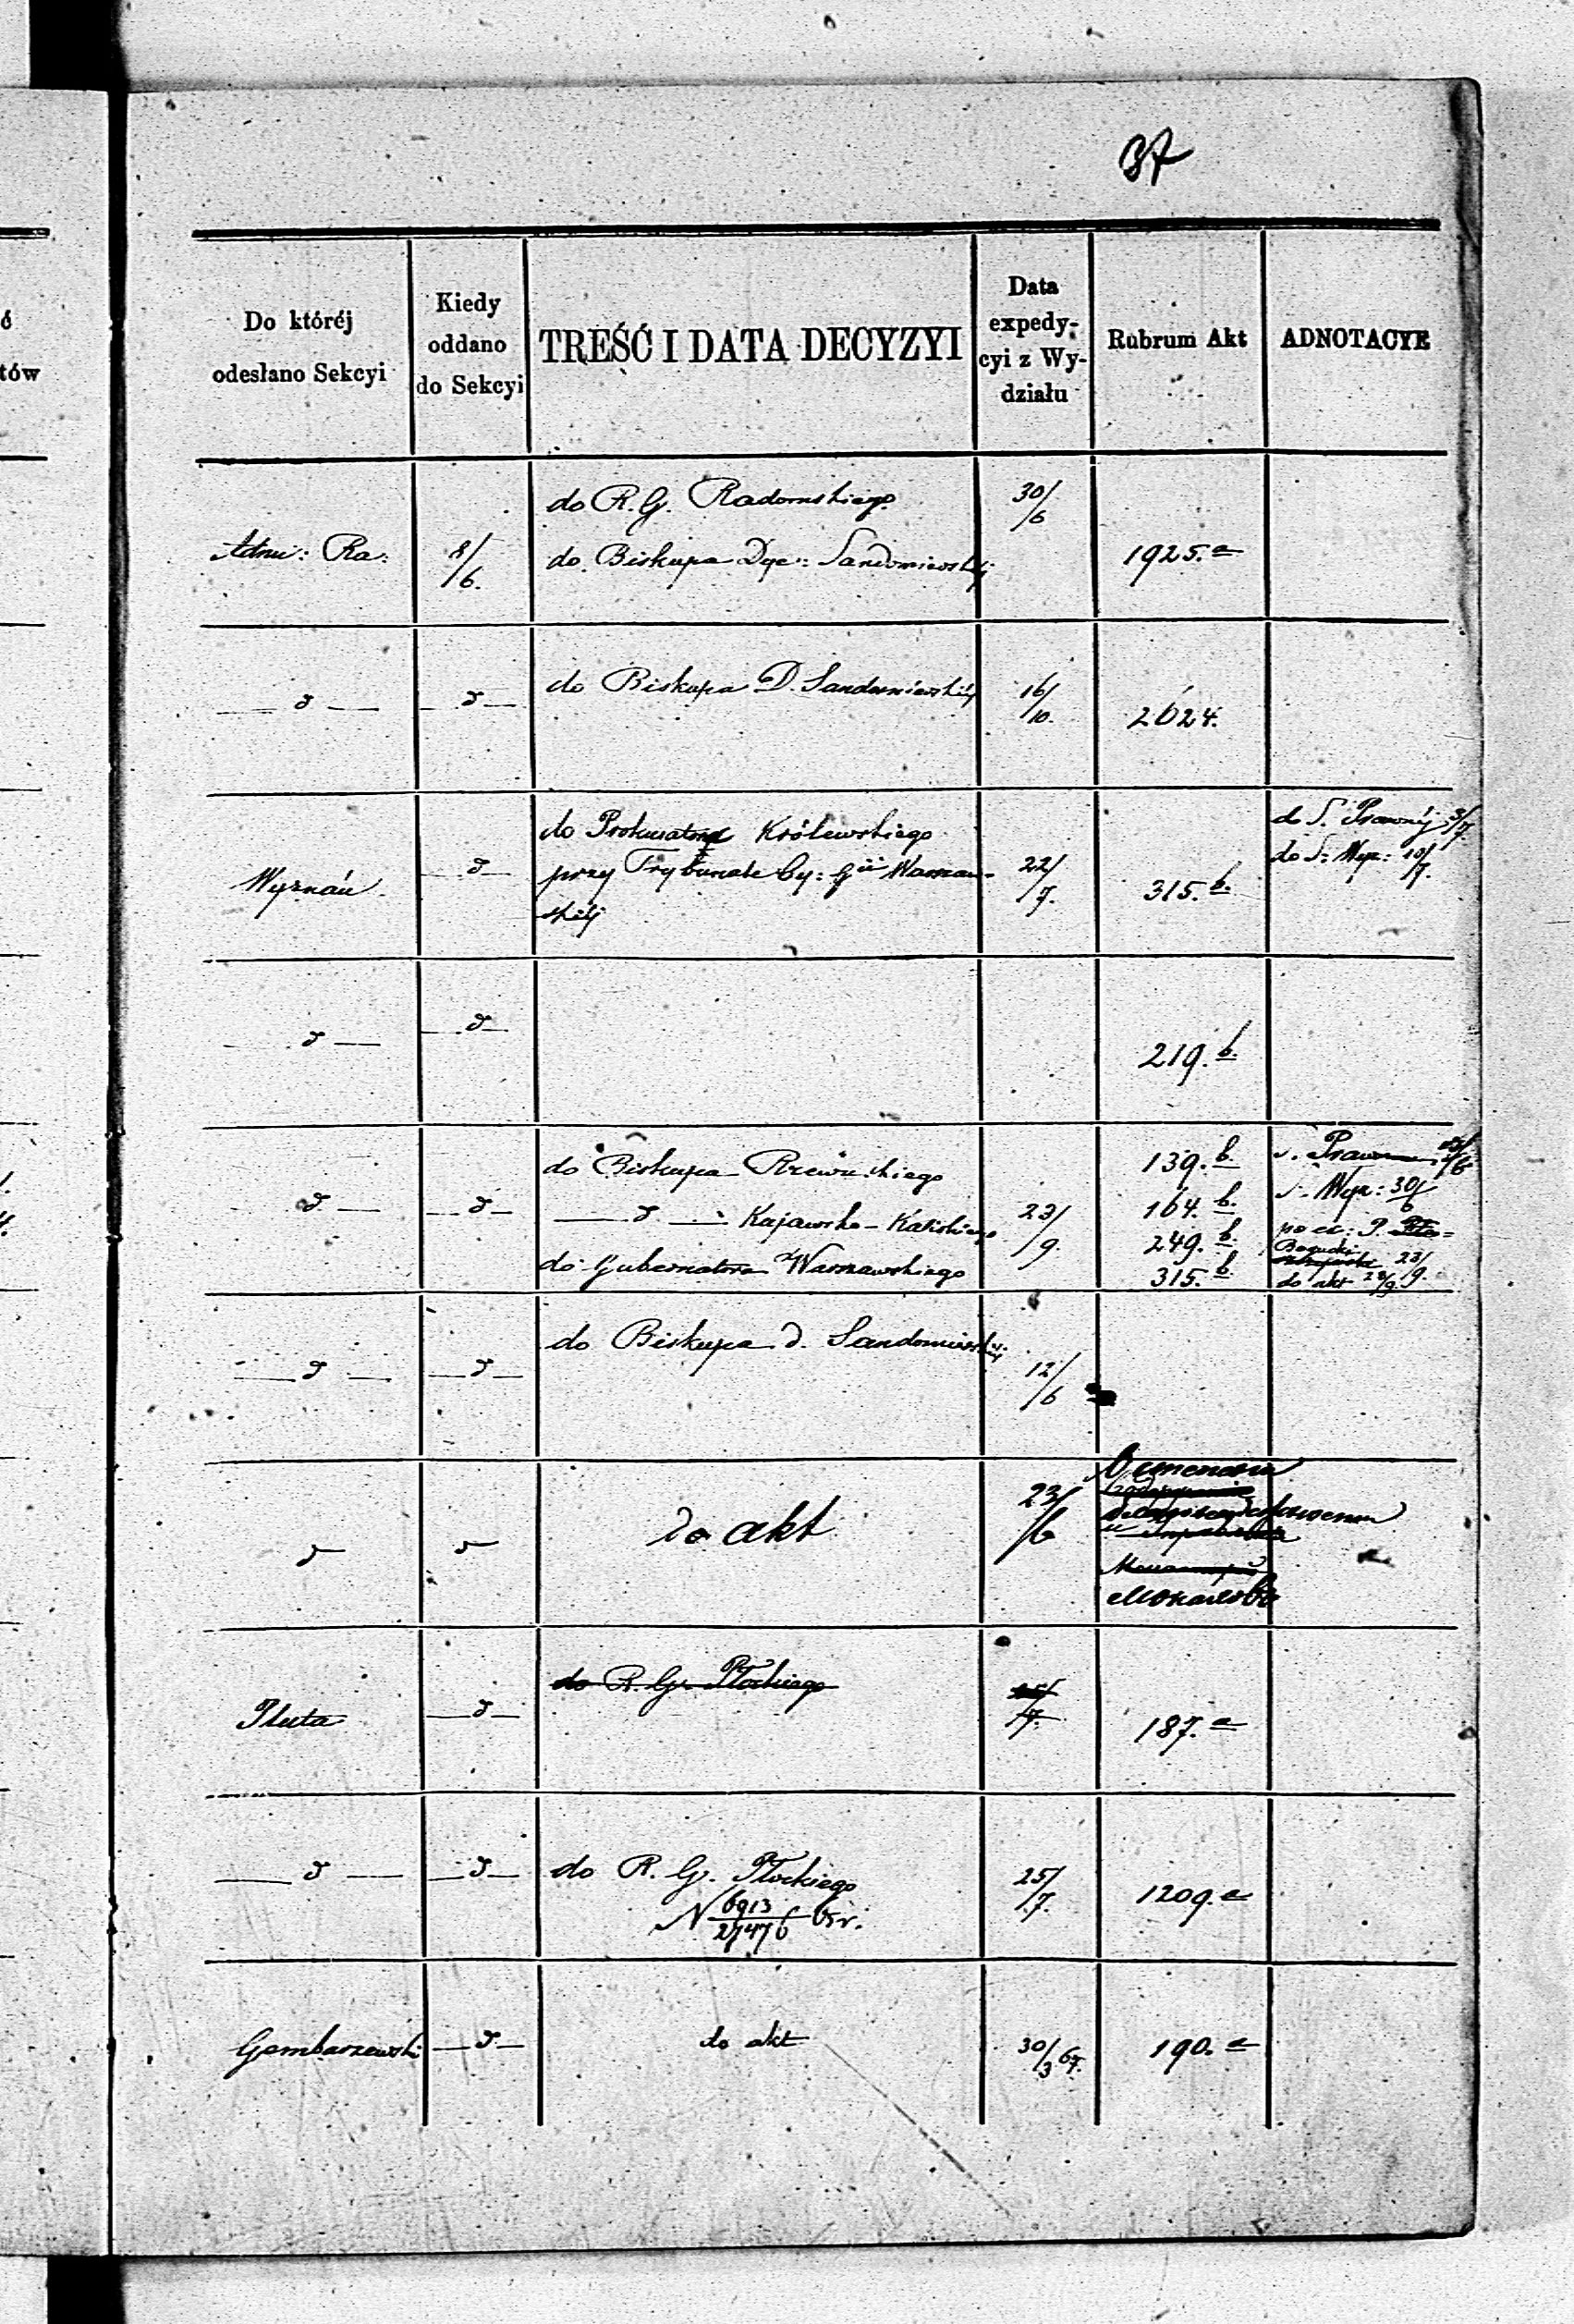 37
Do któréj
odesłano Sekcyi
Kiedy
oddano
do Sekcyi
TREŚĆ I DATA DECYZYI
Data
expedy-
cyi z Wy-
działu
Rubrum Akt
ADNOTACYE
ć
tów
do R. G. Radomskiego
30/6
Adm: Ra:
8/6.
do Biskupa Dye: Sandomierskiéj
1925. a
d
d
do Biskupa D. Sandomierskiéj
16/10.
2624.
Wyznań
d
do Prokuratora Królewskiego
przy Trybunale Cy: Gii Warszaw-
skiéj
22/7.
315. b.
do S. Prawnéj 3/7.
do S: Wyz: 10/7.
d
d
219. b.
d
d
do Biskupa Rzewuskiego
d Kujawsko-Kaliskiego
do Gubernatora Warszawskiego
23/9.
139. b.
164. b.
249. b.
315. b.
S. Wyz: 30/6
do akt 28/9.
d
d
do Biskupa d. Sandomierskiéj
12/6
d
d
do akt
23/6
Pluta
d
do R. G. Płockiego
187. a
d
d
do R. G. Płockiego
N 6913/27476
25/7.
1209. a
Gembarzewski
d
do akt
30/3 67.
190. a